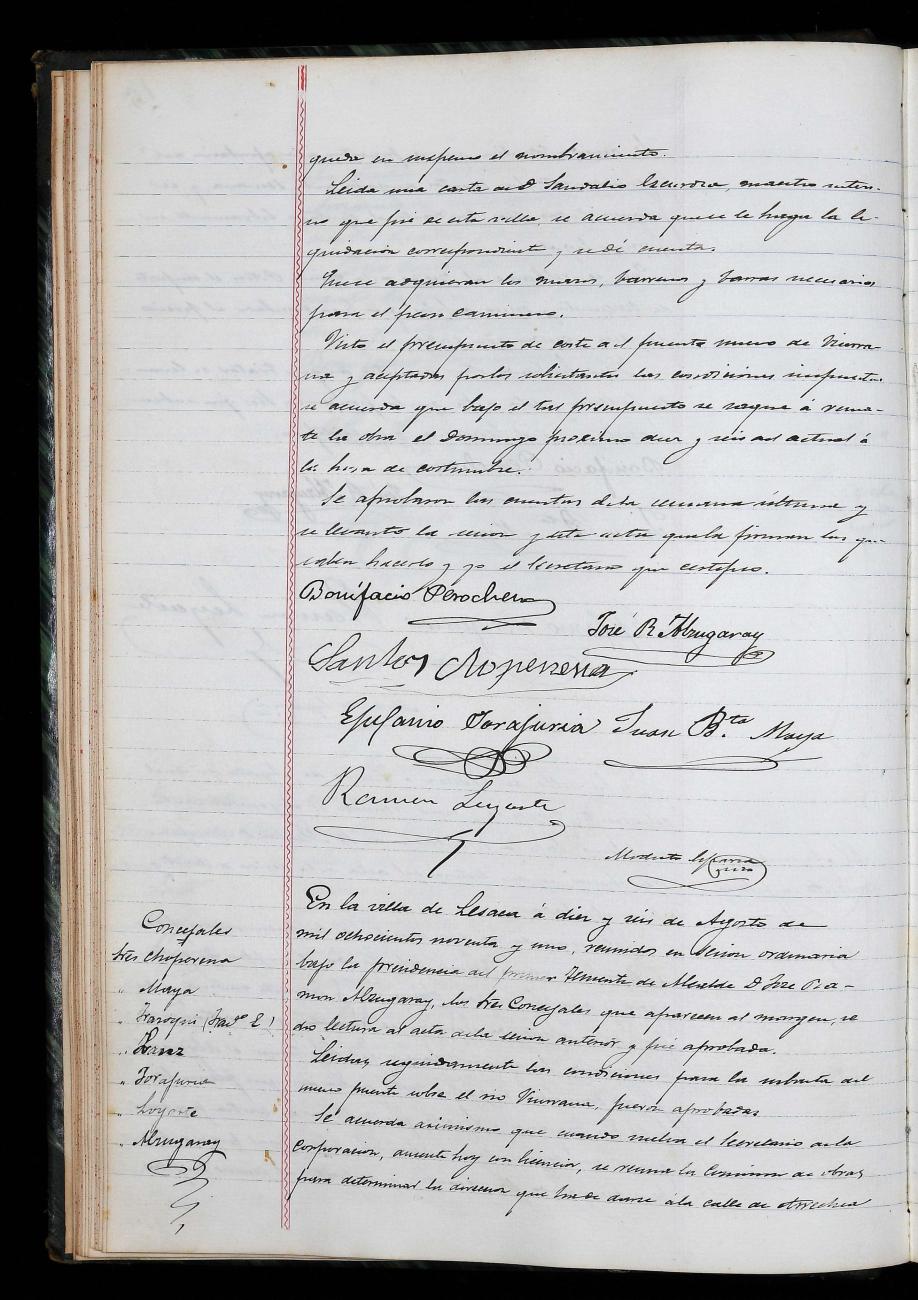 queda en suspenso el nombramiento.
Leida una carta de D Sandalio Escurdia, maestro interi-
no que fué de esta villa, se acuerda que se le haga la li-
quidacion correspondiente y se dé cuenta.
Que se adquieran los mazos, barrenos y barras necesarios
para el peon caminero.
Visto el presupuesto de coste del puente nuevo de
na y aceptadas por los solicitantes las condiciones impuestas
se acuerda que bajo el tal presupuesto se saque á rema-
te la obra el Domingo proximo diez y seis del actual á
la hora de costumbre.
Se aprobaron las cuentas de la semana última y
se levantó la sesion y esta acta que la firman los que
saben hacerlo y yo el Secretario que certifico.
Bonifacio Perochena
José R Alzugaray
Santos Choperena
Epifanio Torajuria Juan Bta Maya
Ramon Loyarte
Modesto
En la villa de Lesaca á diez y seis de Agosto de
mil ochocientos noventa y uno, reunidos en sesion ordinaria
bajo la presidencia del primer Teniente de Alcalde D Jose Ra-
mon Alzugaray, los Sres Concejales que aparecen al margen, se
dio lectura al acta de la sesion anterior y fué aprobada.
Leidas seguidamente las condiciones para la subasta del
nuevo puente sobre el rio fueron aprobadas
Se acuerda asimismo que cuando vuelva el Secretario de la
corporacion, ausente hoy con licencia, se reuna la Comision de obras
para determinar la direccion que ha de darse á la calle de Arrechea
Concejales
Sres Choperena
" Maya
" (Franco E)
" Iranz
" Torajuria
" Loyarte
" Alzugaray